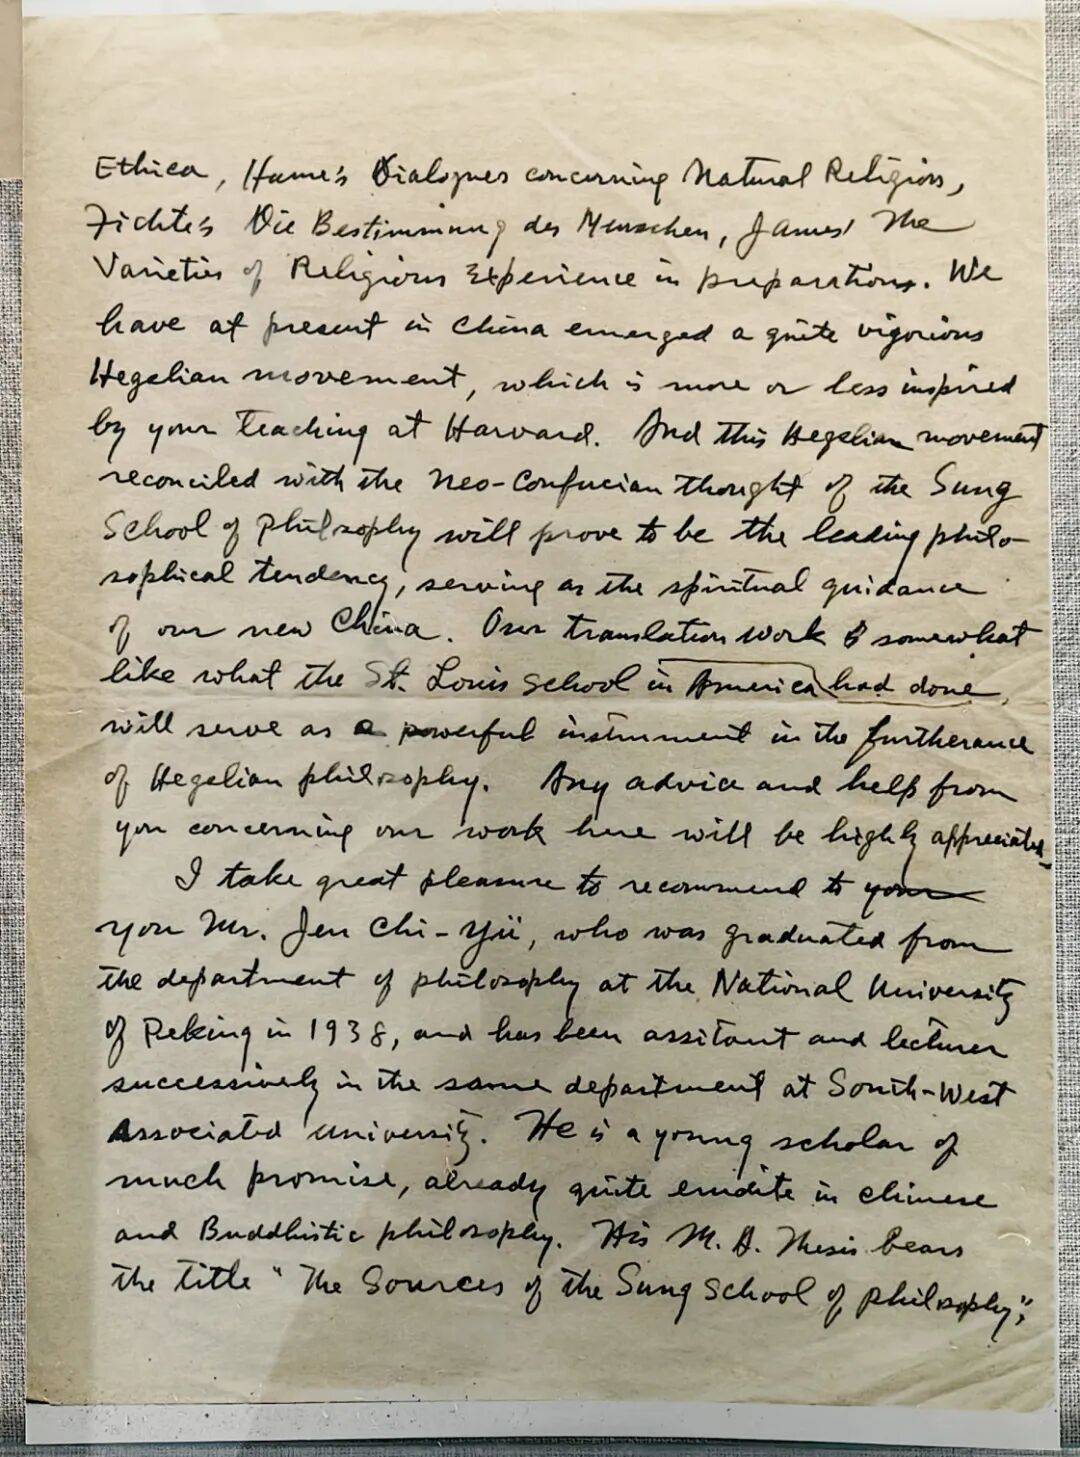 Ethica, Hume's Dialogues concerning Natural Religion,
Fichte's Die Bestimmung des Menschen, James' The
Varieties of Religious Experience in preparations. We
have at present in China emerged a quite vigorious
Hegelian movement, which is more or less inspired
by your teaching at Harvard. And this Hegelian movement
reconciled with the Neo-Confucian thought of the Sung
School of Philosophy will prove to be the leading philo-
sophical tendency, serving as the spiritual guidance
of our new China. Our translation work somewhat
like what the St. Louis School in America had done,
will serve as a powerful instrument in the furtherance
of Hegelian philosophy. Any advice and help from
you concerning our work here will be highly appreciated.
I take great pleasure to recommend to your
you Mr. Jen Chi-Yü, who was graduated from
the department of philosophy at the National University
of Peking in 1938, and has been assitant and lecturer
successively in the same department at South-West
Associated University. He is a young scholar of
much promise, already quite erudite in chinese
and Buddhistic philosophy. His M. A. Thesis bears
the title "The Sources of the Sung School of philosophy",